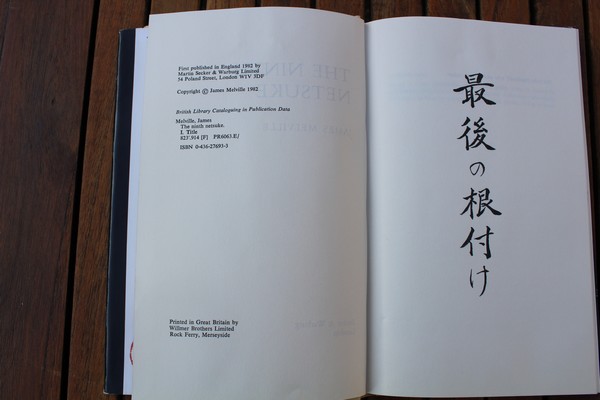 First published in England 1982 by
Martin Secker & Warburg Limited
54 Poland Street, London W1V 3DF
Copyright © James Melville 1982
British Library Cataloguing in Publication Data
Melville, James
The ninth netsuke.
I. Title
823'.914 [F] PR6063.E/
ISBN 0-436-27693-3
Printed in Great Britain by
Willmer Brothers Limited
Rock Ferry, Merseyside
最後の根付け